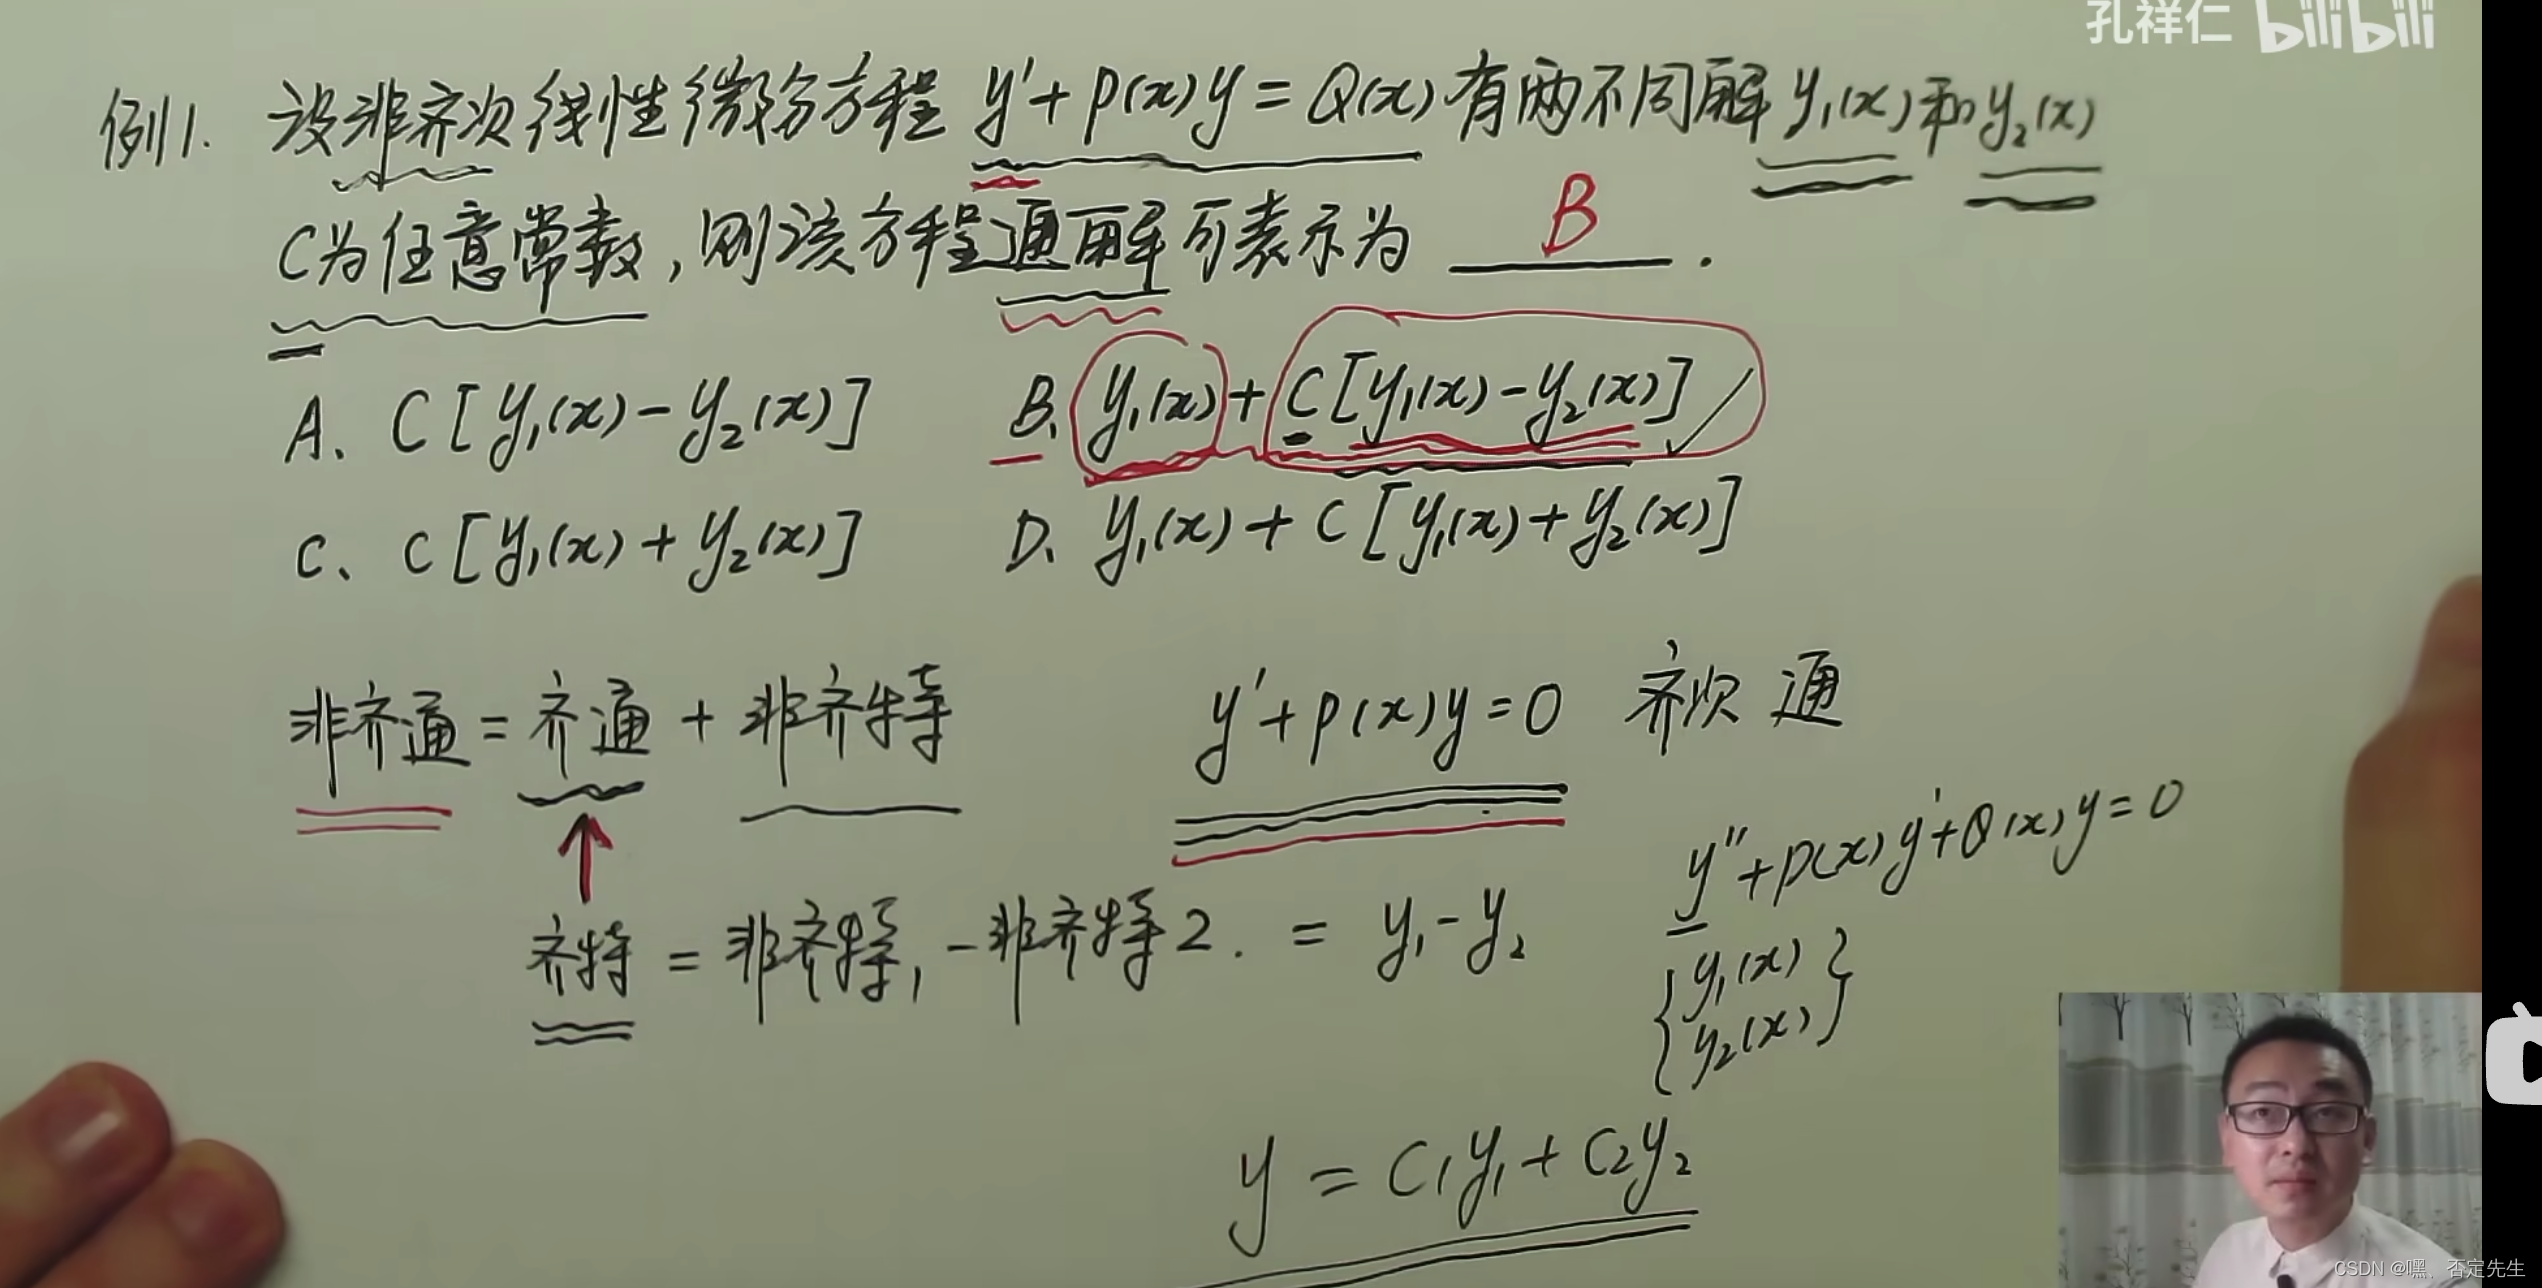 孔祥仁 bilibili
例1. 设非齐次线性微分方程 y'+p(x)y=Q(x) 有两不同解 y₁(x) 和 y₂(x)
C为任意常数,则该方程通解可表示为 B .
A、C[y₁(x)-y₂(x)] B、y₁(x)+C[y₁(x)-y₂(x)]✓
C、C[y₁(x)+y₂(x)] D、y₁(x)+C[y₁(x)+y₂(x)]
非齐通=齐通+非齐特 y'+p(x)y=0 齐次 通
y''+p(x)y'+Q(x)y=0
齐特=非齐特1-非齐特2.=y₁-y₂
{y₁(x)
y₂(x)}
y=C₁y₁+C₂y₂
CSDN @嘿、否定先生